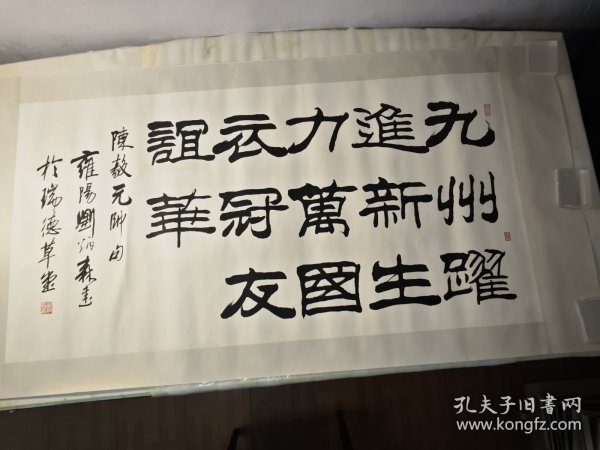 九州躍
進新生
力萬國
衣冠友
誼華
陳毅元帥句
雍陽劉炳森書
於瑞德草堂
孔夫子旧书网
www.kongfz.com